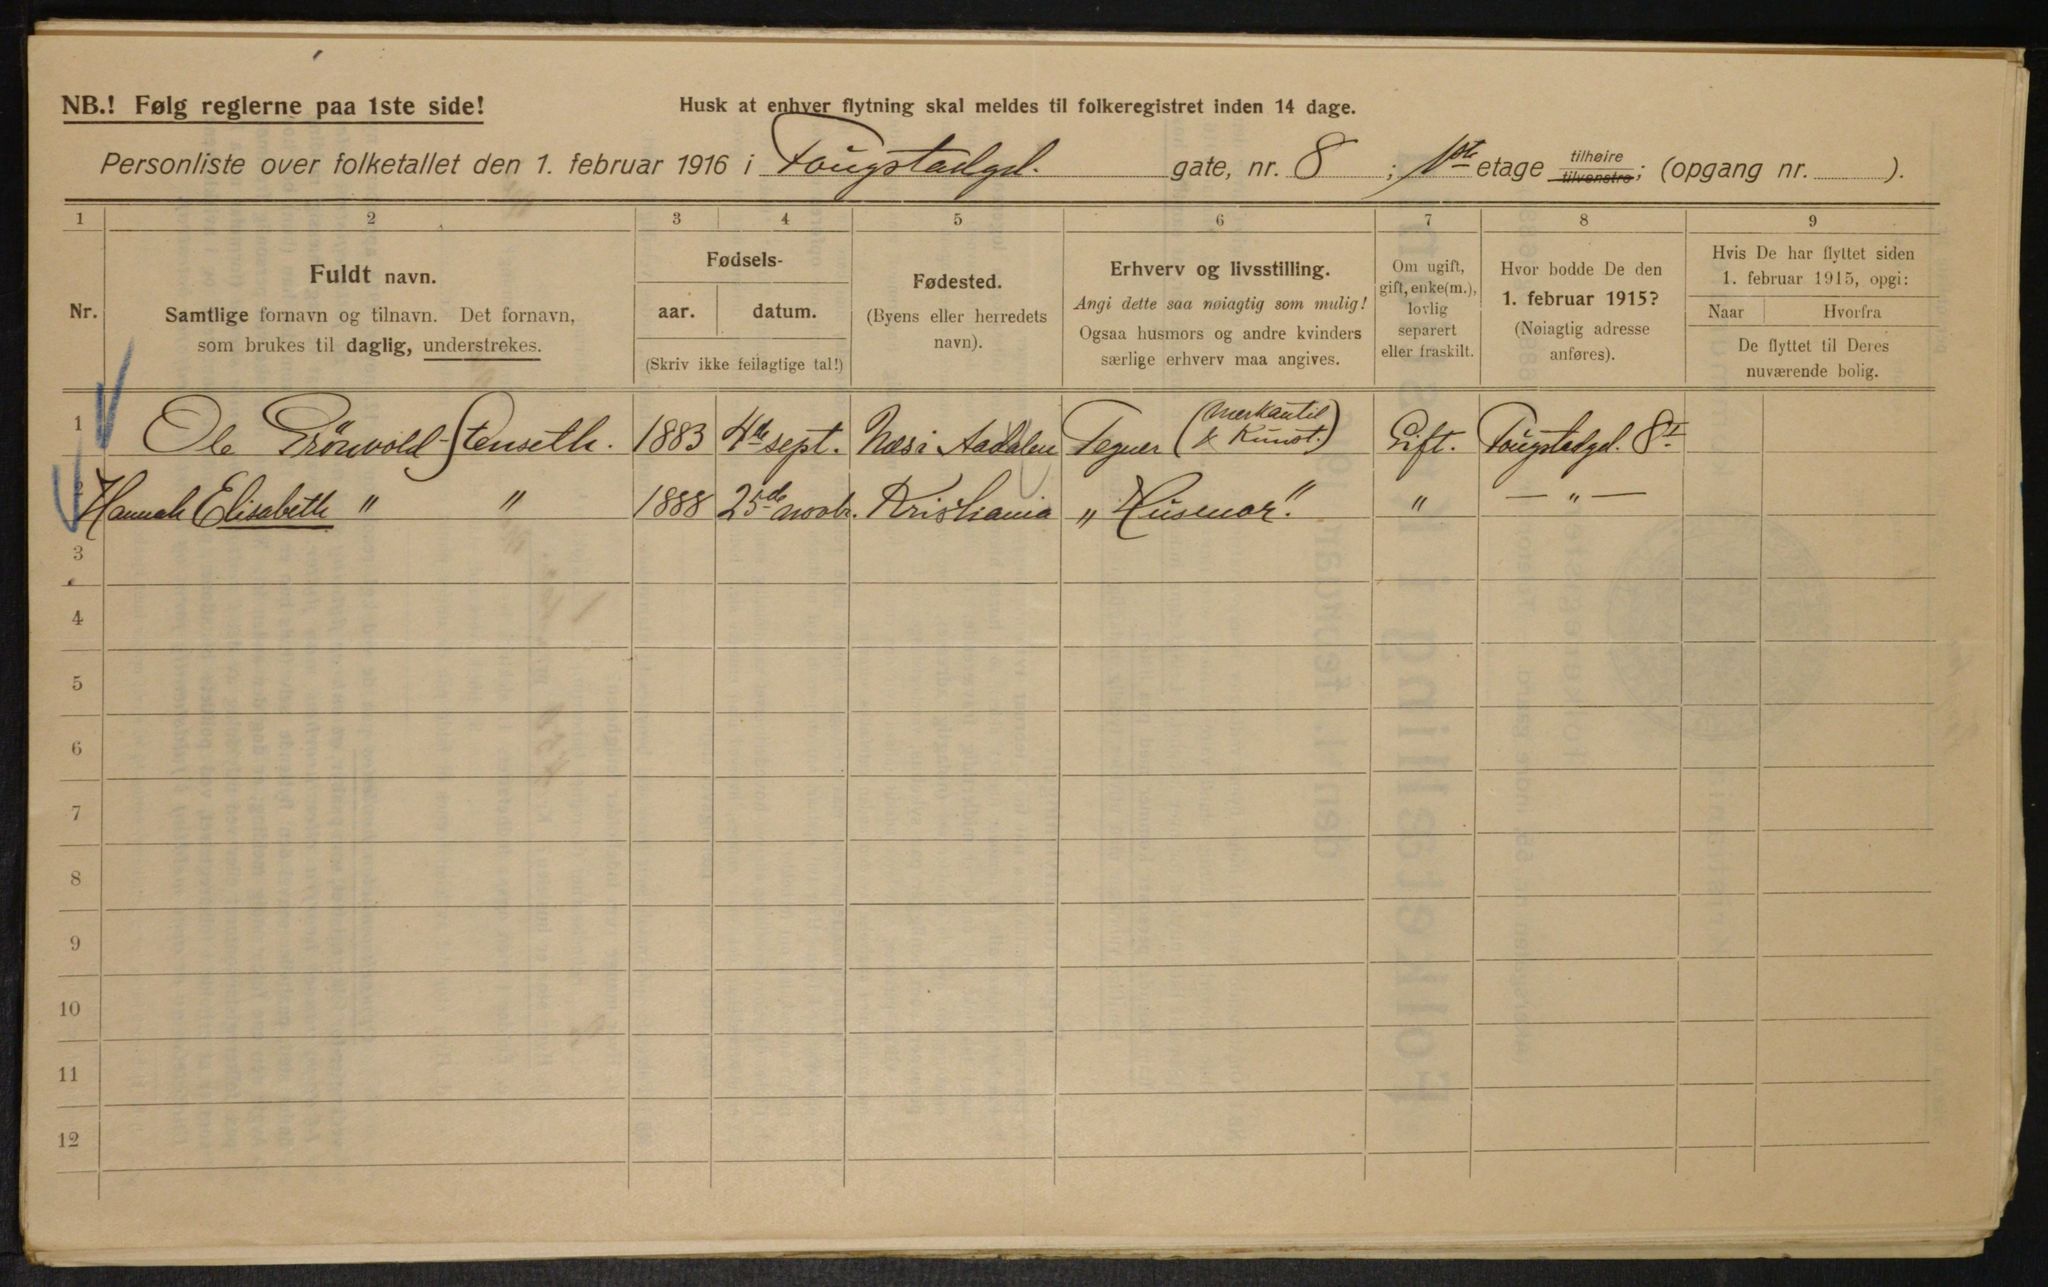 NB.! Følg reglerne paa 1ste side!
Husk at enhver flytning skal meldes til folkeregistret inden 14 dage.
Personliste over folketallet den 1. februar 1916 i Fougstadgd. gate, nr. 8 ; 1ste etage tilhøire tilvenstre; (opgang nr. ).
1 2 3 4 5 6 7 8 9
Nr.
Fuldt navn.
Samtlige fornavn og tilnavn. Det fornavn,
som brukes til daglig, understrekes.
Fødsels-
aar. datum.
(Skriv ikke feilagtige tal!)
Fødested.
(Byens eller herredets
navn).
Erhverv og livsstilling.
Angi dette saa nøiagtig som mulig!
Ogsaa husmors og andre kvinders
særlige erhverv maa angives.
Om ugift,
gift, enke(m.),
lovlig
separert
eller fraskilt.
Hvor bodde De den
1. februar 1915?
(Nøiagtig adresse
anføres).
Hvis De har flyttet siden
1. februar 1915, opgi:
Naar Hvorfra
De flyttet til Deres
nuværende bolig.
1 Ole Grönvold-Stenseth. 1883 4de sept. Næs i Aadalen Tegner (Merkantil & Kunst.) Gift. Fougstadgd. 8 I
2 Hannah Elisabeth " " 1888 25de novbr. Kristiania „Husmor." " — " —
3
4
5
6
7
8
9
10
11
12